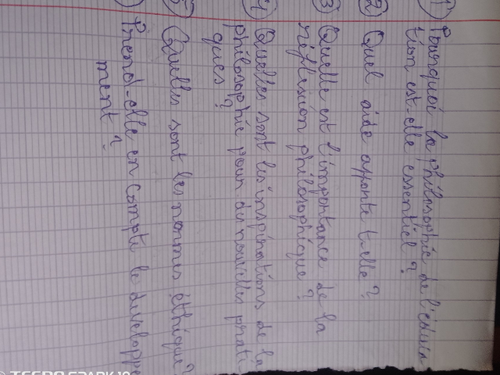 ① Pourquoi la philosophie de l'éduca-
tion est-elle essentiel?
② Quel aide apporte t-elle?
③ Quelle est l'importance de la
réflexion philosophique?
④ Quelles sont les inspirations de la
philosophie pour du nouvelles prati-
ques?
⑤ Quelles sont les normes éthique?
Prend-elle en compte le developpe
ment?